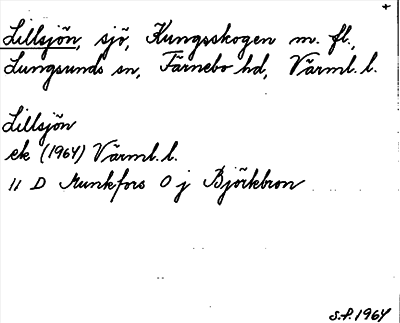 +
Lillsjön, sjö, Kungsskogen m. fl.,
Lungsunds sn, Färnebo hd, Värml. l.
Lillsjön
ek (1964) Värml. l.
11 D Munkfors O j Björkbron
S.f. 1964